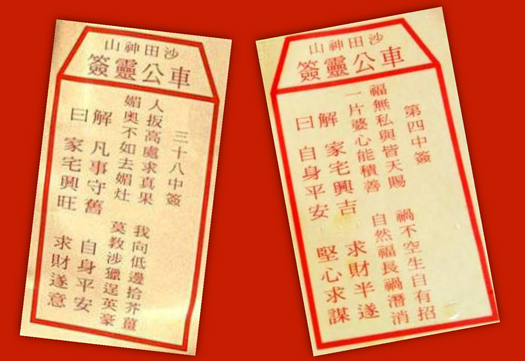 沙田神山
車公靈簽
三十八中簽
人扳高處求真果 我向低邊拾芥薑
媚奧不如去媚灶 莫教涉獵逞英豪
解 凡事守舊 自身平安
曰 家宅興旺 求財遂意
沙田神山
車公靈簽
第四中簽
福無私與皆天賜 禍不空生自有招
一片婆心能積善 自然福長禍潛消
解 家宅興吉 求財半遂
曰 自身平安 堅心求謀